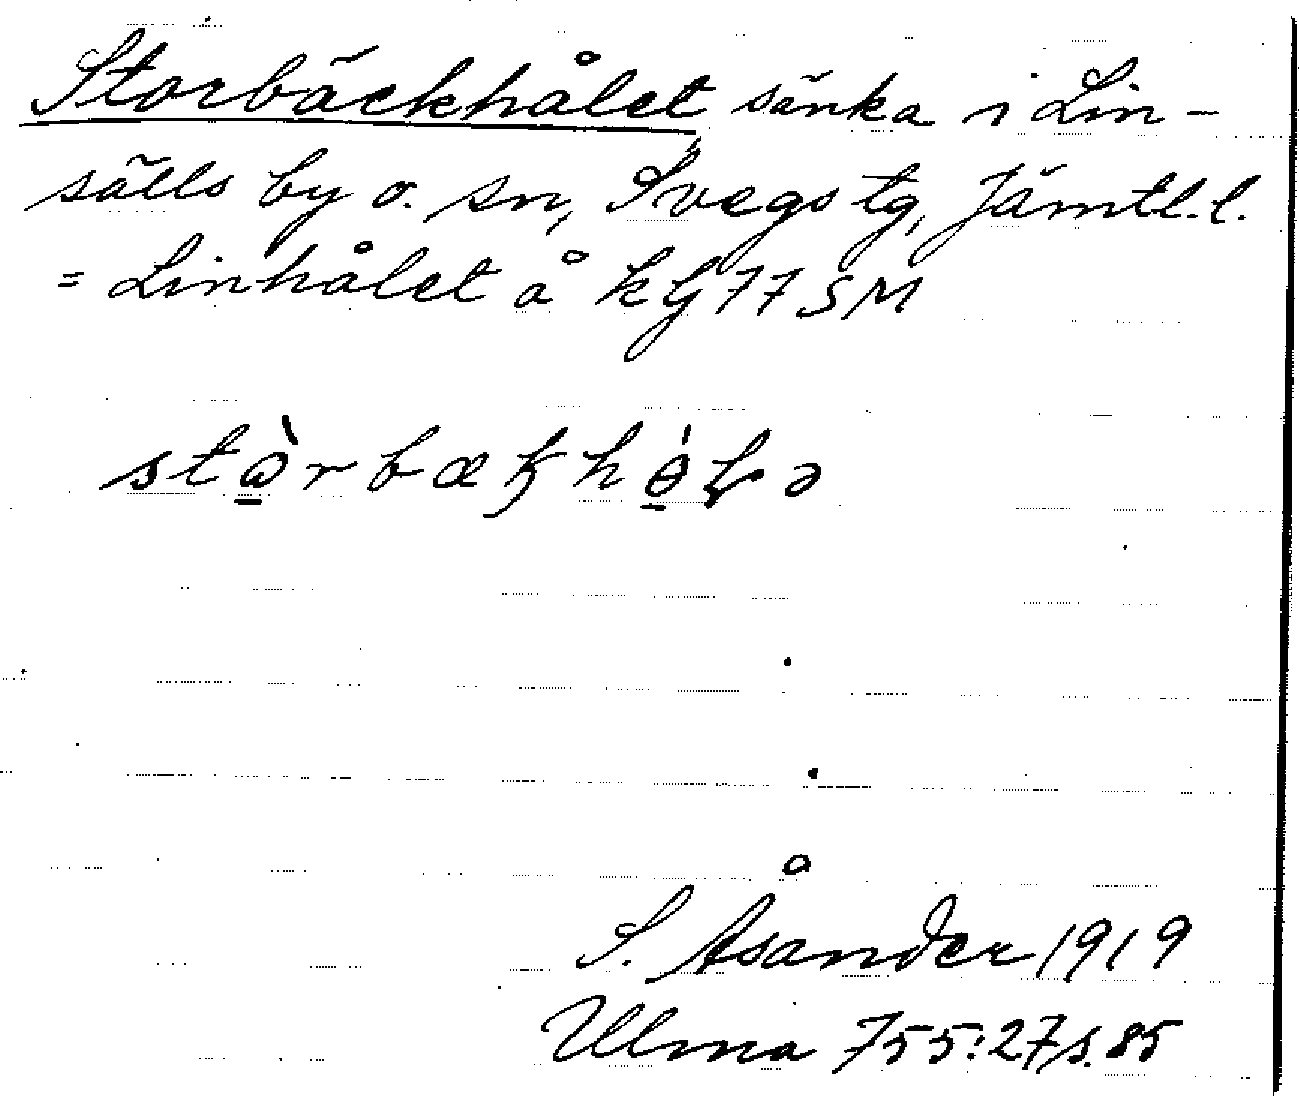 Storbäckhålet, sänka i Lin-
sälls by o. sn, Svegs tg, Jämtl.l.
= Linhålet å kbl 77 SM
S. Åsander 1919
Ulma 755:27 s. 85